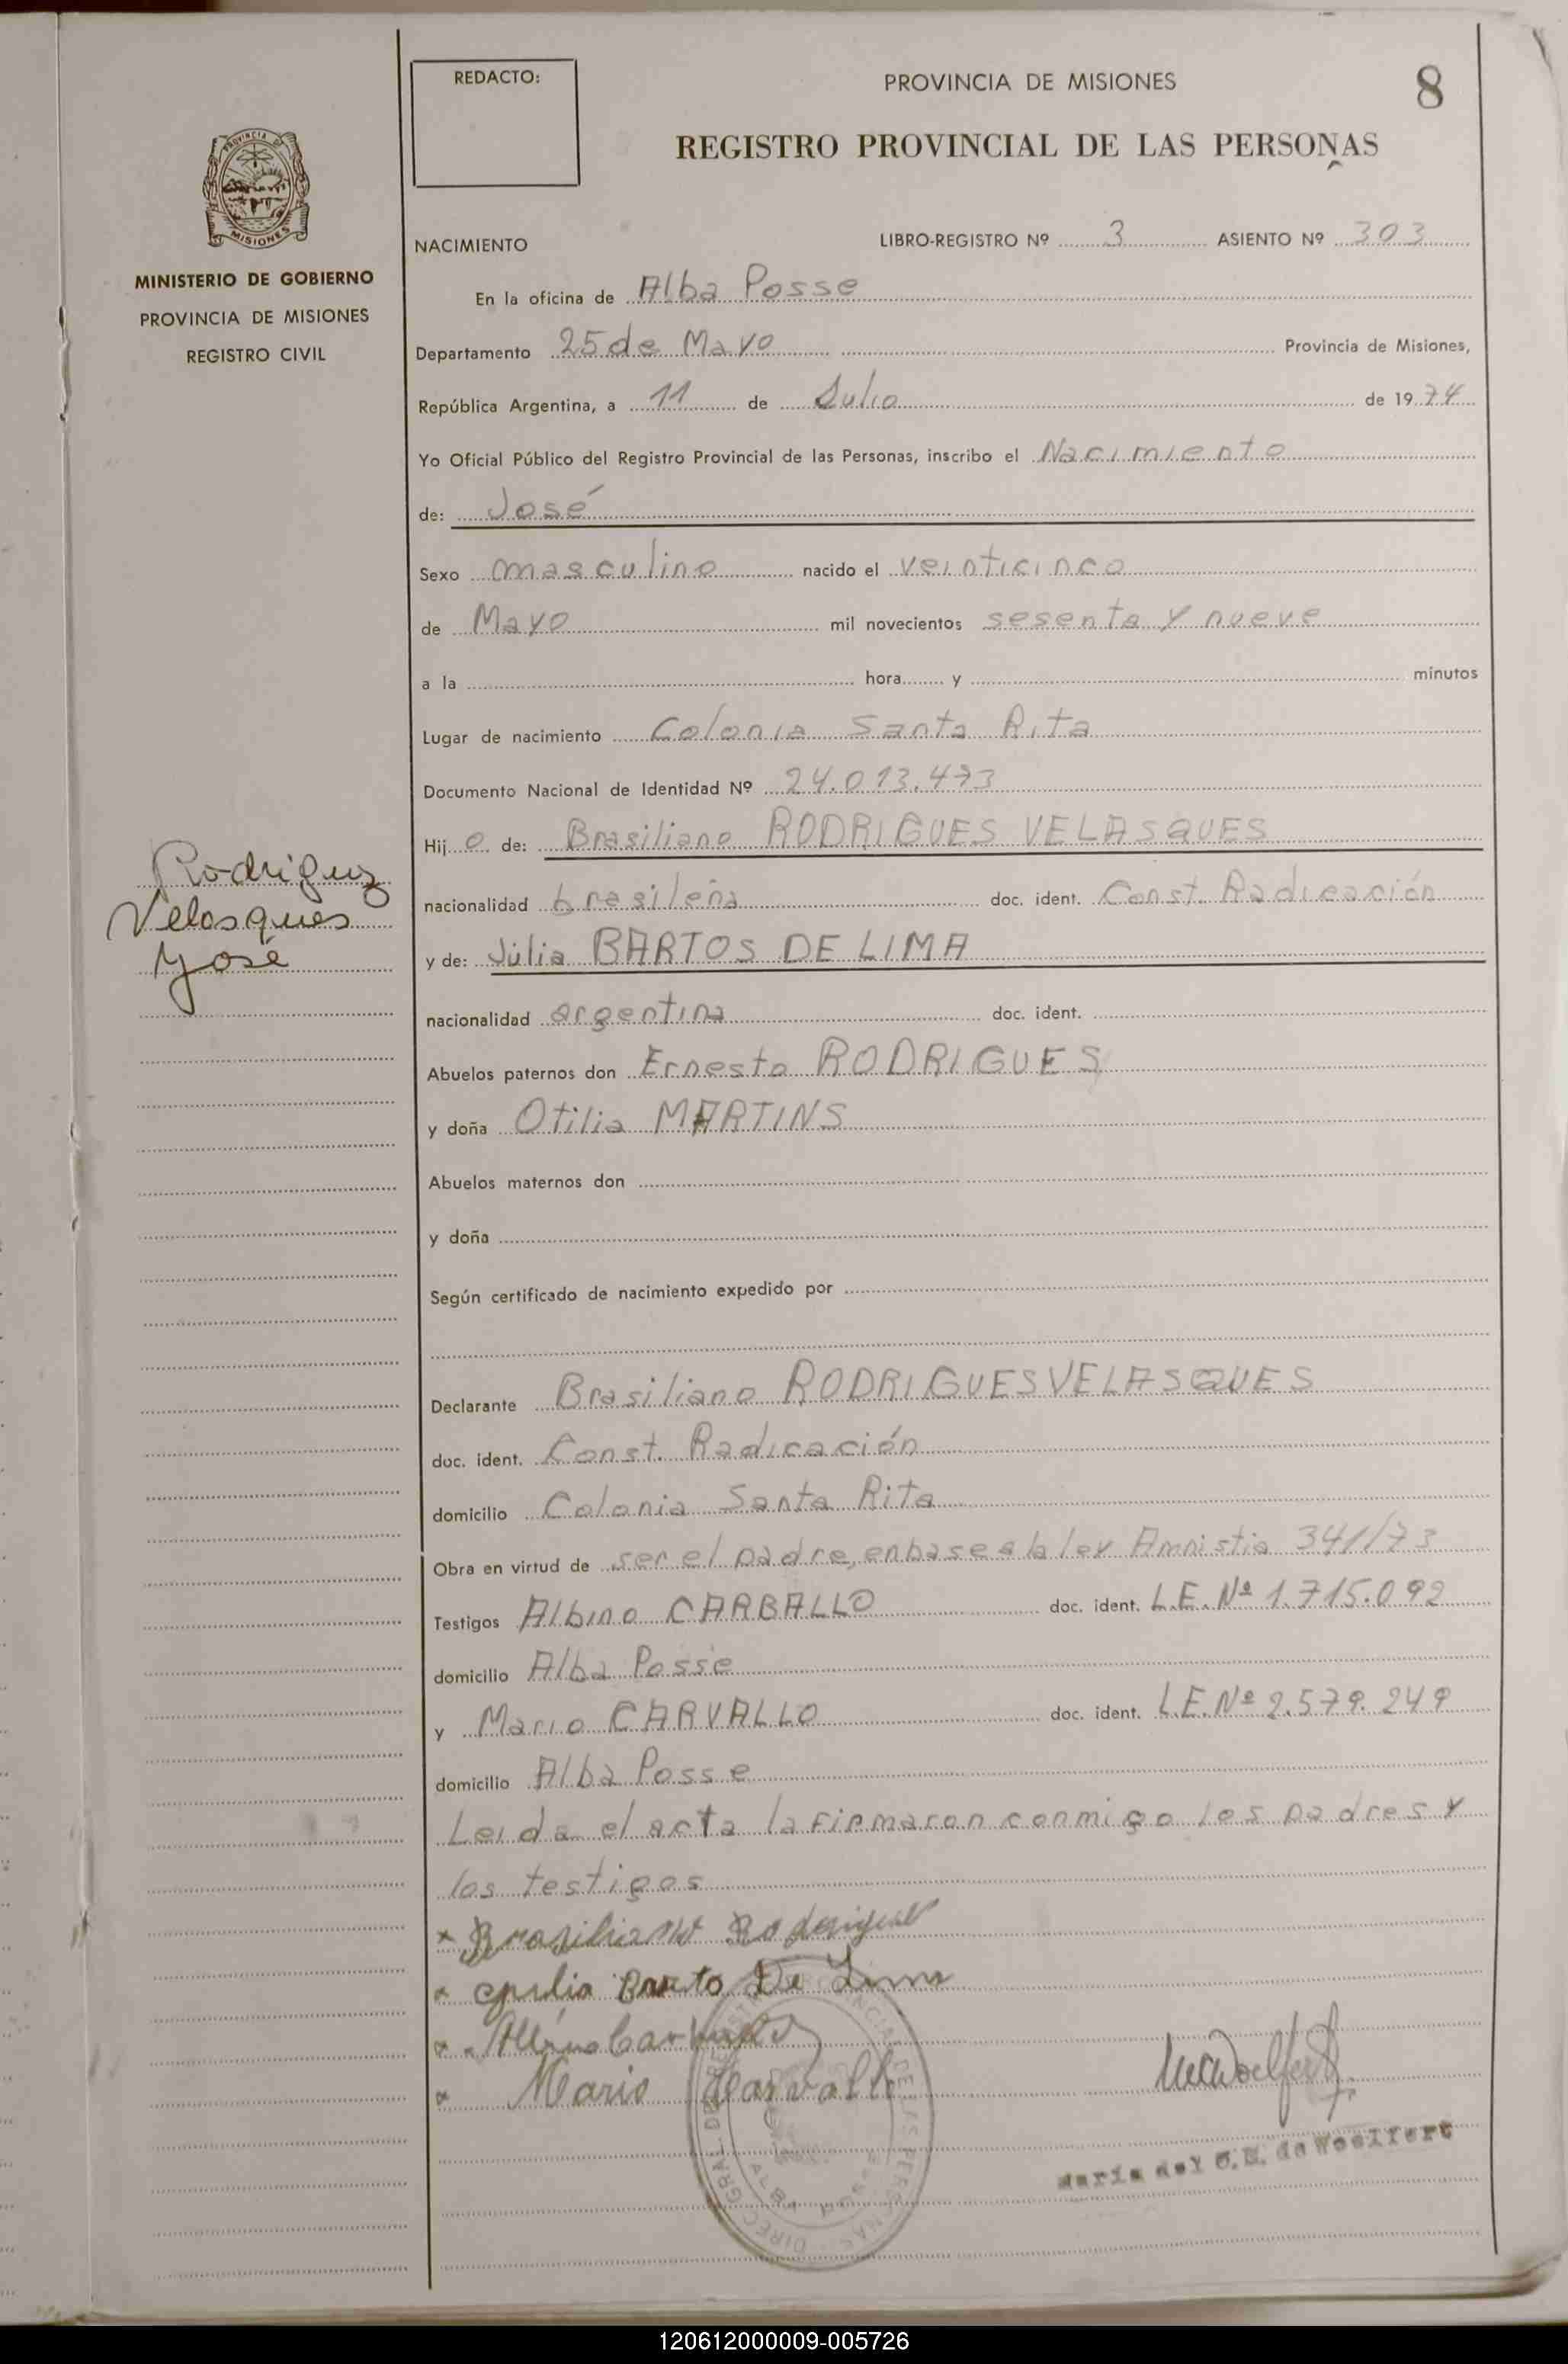 REDACTO:
PROVINCIA DE MISIONES
8
REGISTRO PROVINCIAL DE LAS PERSONAS
PROVINCIA DE
MISIONES
MINISTERIO DE GOBIERNO
PROVINCIA DE MISIONES
REGISTRO CIVIL
NACIMIENTO
LIBRO-REGISTRO Nº 3 ASIENTO Nº 303
En la oficina de Alba Posse
Departamento 25 de Mayo Provincia de Misiones,
República Argentina, a 11 de Julio de 1974
Yo Oficial Público del Registro Provincial de las Personas, inscribo el Nacimiento
de: José
Sexo masculino nacido el veinticinco
de Mayo mil novecientos sesenta y nueve
a la hora y minutos
Lugar de nacimiento Colonia Santa Rita
Documento Nacional de Identidad Nº 24.013.473
Hijo de: Brasiliano RODRIGUES VELASQUES
nacionalidad brasileña doc. ident. Const. Radicación
y de: Julia BARTOS DE LIMA
nacionalidad argentina doc. ident.
Abuelos paternos don Ernesto RODRIGUES
y doña Otilia MARTINS
Abuelos maternos don
y doña
Según certificado de nacimiento expedido por
Declarante Brasiliano RODRIGUES VELASQUES
doc. ident. Const. Radicación
domicilio Colonia Santa Rita
Obra en virtud de ser el padre, en base a la ley Amnistia 341/73
Testigos Albino CARBALLO doc. ident. L.E. Nº 1.715.092
domicilio Alba Posse
y Mario CARVALLO doc. ident. L.E. Nº 2.579.249
domicilio Alba Posse
Leida el acta la firmaron conmigo los padres y
los testigos
Rodriguez
Velasques
José
x Brasiliano Rodrigues
x Julia Barto De Lima
x Albino Carballo
x Mario Carvallo
Maria del C. M. de Woelfert
120612000009-005726